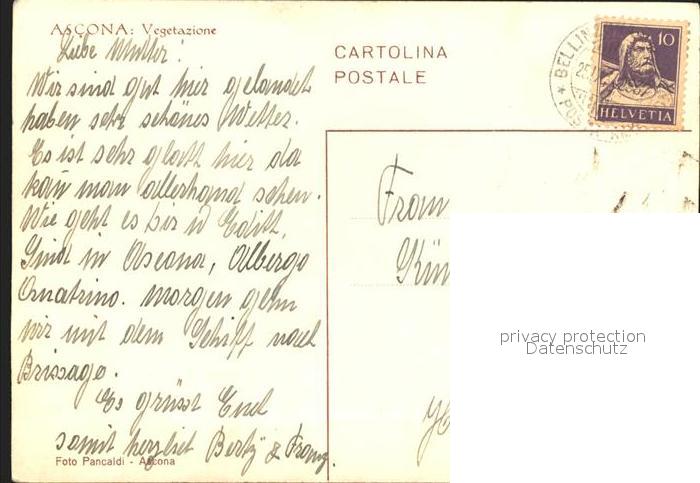 ASCONA: Vegetazione
Liebe Mutter!
Wir sind gut hier gelandet
haben sehr schönes Wetter.
Es ist sehr glatt hier da
kan̄ man allerhand sehen.
Wie geht es dir u Edith,
Sind in Ascona, Albergo
Quatrino. Morgen gehn
wir mit dem Schiff nach
Brissago.
Es grüsst Euch
somit herzlich Berty & Franz.
Foto Pancaldi - Ascona
CARTOLINA
POSTALE
10
HELVETIA
Frau
privacy protection
Datenschutz